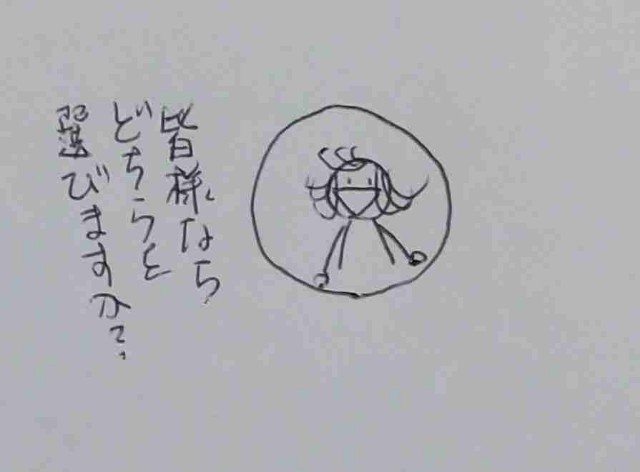 皆様なら
どちらを
選びますか?